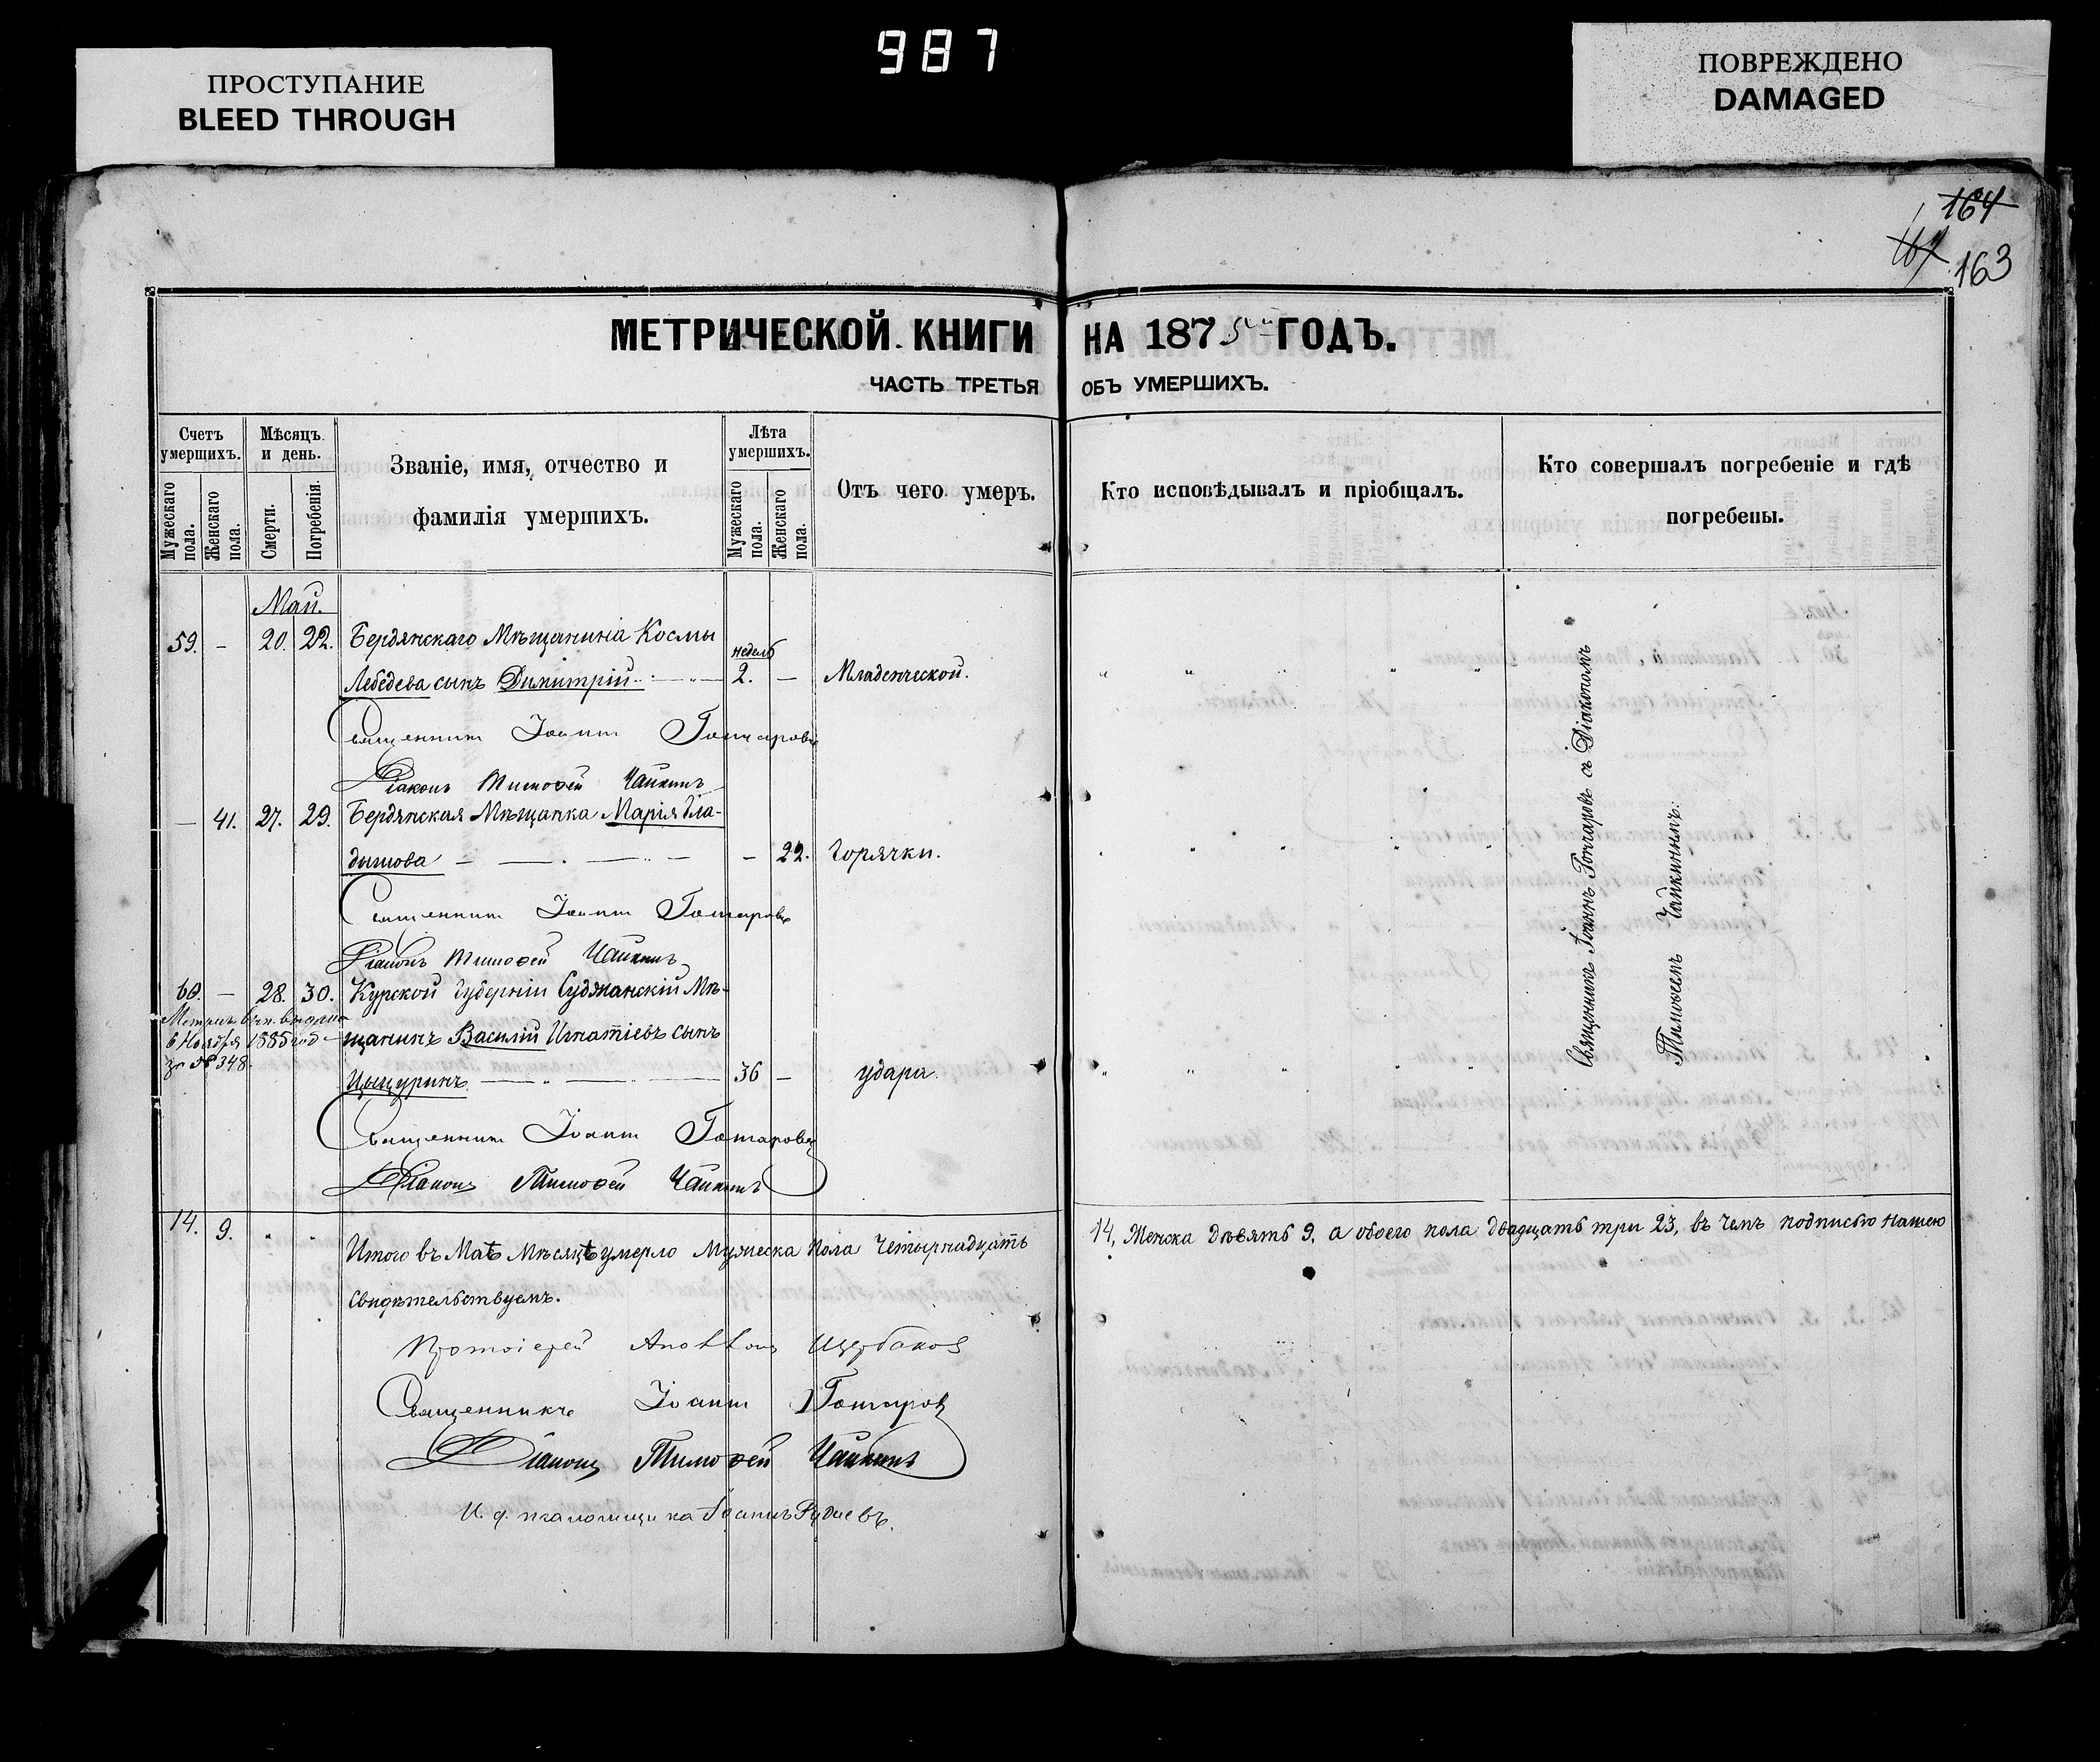 987
ПРОСТУПАНИЕ
BLEED THROUGH
ПОВРЕЖДЕНО
DAMAGED
164
163
МЕТРИЧЕСКОЙ КНИГИ НА 1875й ГОДЪ.
ЧАСТЬ ТРЕТЬЯ ОБЪ УМЕРШИХЪ.
Счетъ умершихъ.
Мужескаго пола.
Женскаго пола.
Мѣсяцъ и день.
Смерти.
Погребенія.
Званіе, имя, отчество и
фамилія умершихъ.
Лѣта умершихъ.
Мужескаго пола.
Женскаго пола.
Отъ чего умеръ.
Кто исповѣдывалъ и пріобщалъ.
Кто совершалъ погребеніе и гдѣ
погребены.
Май.
59. – 20. 22. Бердянскаго Мѣщанина Космы
Лебедева сынъ Димитрій недель 2. – Младенческой.
Священник Іоанн Гончаровъ
Діаконъ Тимоѳей Чайкинъ
– 41. 27. 29. Бердянская Мѣщанка Марія Бла-
дышова – 22. Горячки.
Священник Іоанн Гончаровъ
Діаконъ Тимоѳей Чайкинъ
60. – 28. 30. Курской Губерніи Суджанскій Мѣ-
щанинъ Василій Игнатіевъ сынъ
Цыцуринъ 36 – удара.
6 Ноября 1885 год
за № 348.
Священник Іоанн Гончаровъ
Діаконъ Тимоѳей Чайкинъ
Священникъ Іоаннъ Гончаровъ съ Діакономъ
Тимоѳеемъ Чайкинымъ.
14. 9. Итого въ Маѣ Мѣсяцѣ умерло Мужеска пола Четырнадцать 14, Женска дѣвять 9, а обоего пола двадцать три 23, въ чемъ подписью нашею
Свидѣтельствуемъ.
Протоіерей Аполлонъ Щербаков
Священникъ Іоанн Гончаров
Діаконъ Тимоѳей Чайкинъ
И. д. псаломщика Іоаннъ Рудневъ.